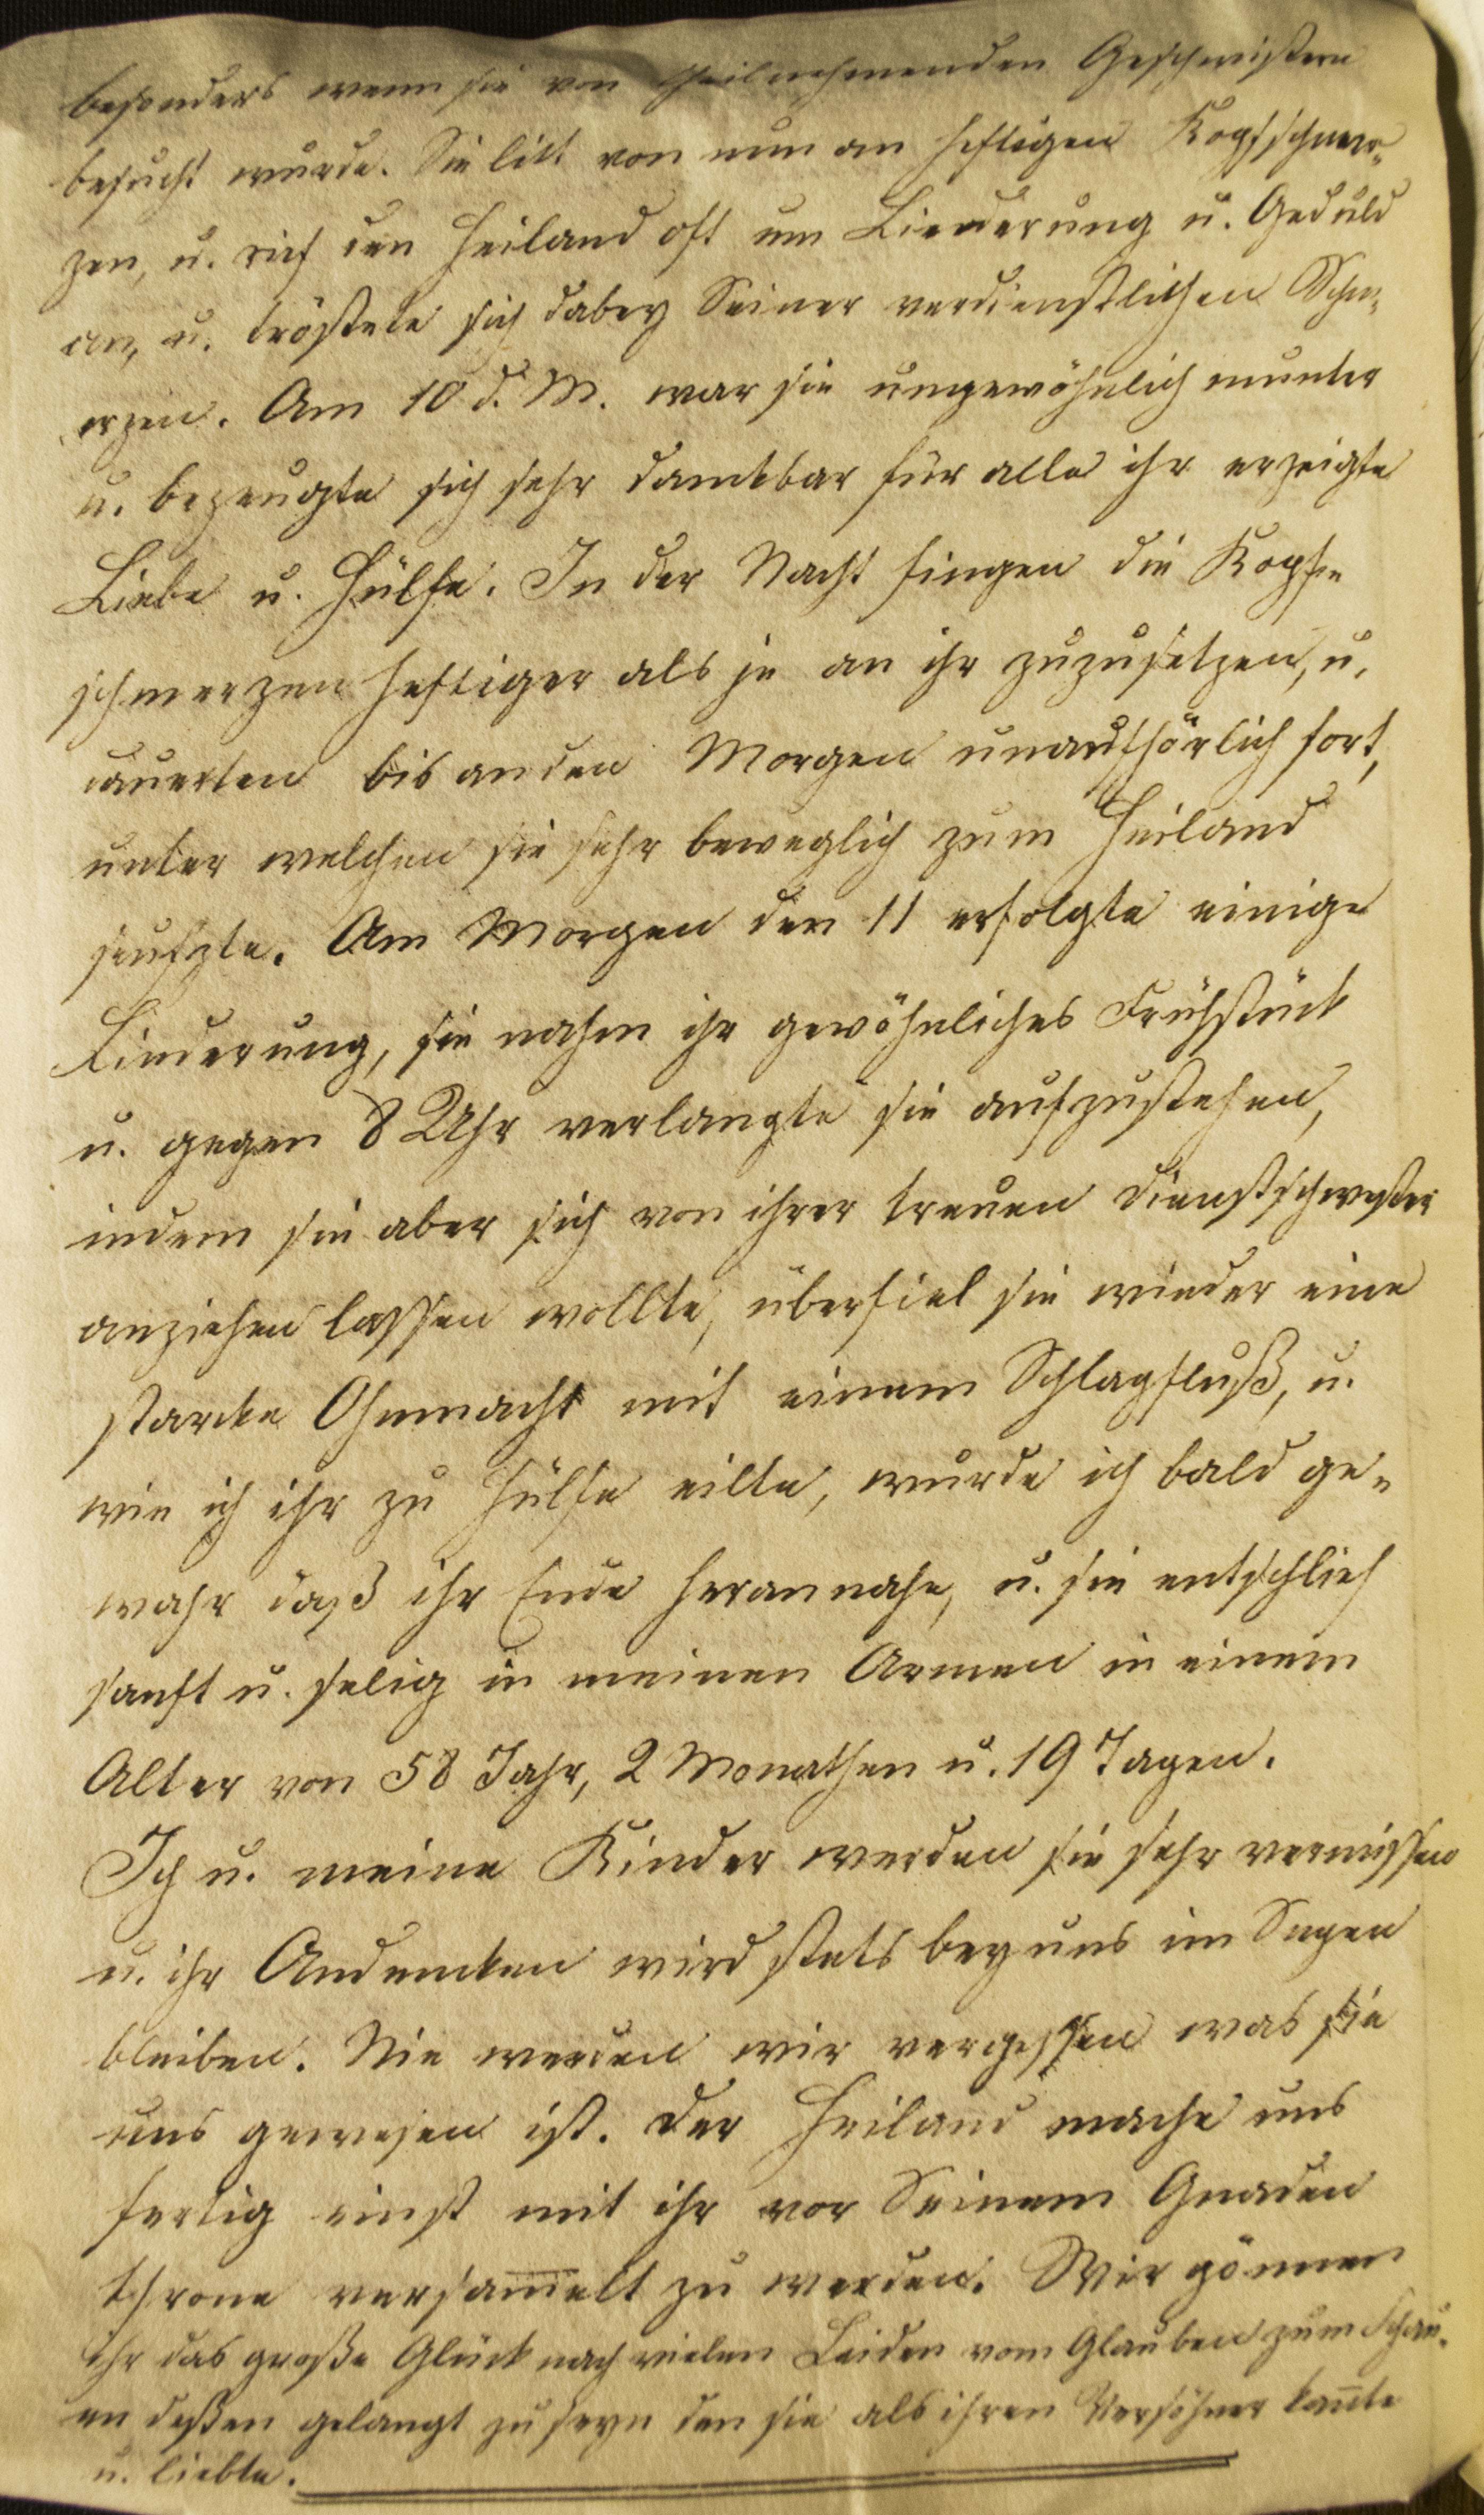 besonders wenn sie von theilnehmenden Geschwistern
besucht wurde. Sie litt von nun an heftigen Kopfschmer-
zen, u. rief den Heiland oft um Linderung u. Geduld
an, u. tröstete sich dabey Seiner verdienstlichen Schm-
erzen. Am 10 d. M. war sie ungewöhnlich munter
u. bezeugte sich sehr dankbar für alle ihr erzeigte
Liebe u. Hülfe. In der Nacht fingen die Kopf-
schmerzen heftiger als je an ihr zuzusetzen, u.
dauerten bis an den Morgen unaufhörlich fort,
unter welchen sie sehr beweglich zum Heiland
seufzte. Am Morgen den 11 erfolgte einige
Linderung, sie nahm ihr gewöhnliches Frühstück
u. gegen 8 Uhr verlangte sie aufzustehen,
indem sie aber sich von ihrer treuen Dienstschwester
anziehen lassen wollte, überfiel sie wieder eine
starcke Ohnmacht mit einem Schlagfluß, u.
wie ich ihr zu Hülfe eilte, wurde ich bald ge-
wahr daß ihr Ende herannahe, u. sie entschlief
sanft u. selig in meinen Armen in einem
Alter von 58 Jahr, 2 Monathen u. 19 Tagen.
Ich u. meine Kinder werden sie sehr vermissen
u. ihr Andencken wird stets bey uns im Segen
bleiben. Nie werden wir vergessen was sie
uns gewesen ist. Der Heiland mache uns
fertig einst mit ihr vor Seinem Gnaden
throne versam̅elt zu werden. Wir gönnen
ihr das große Glück nach vielen Leiden vom Glauben zum Schau-
en deßen gelangt zu seyn den sie als ihren Versöhner kan̅te
u. liebte.